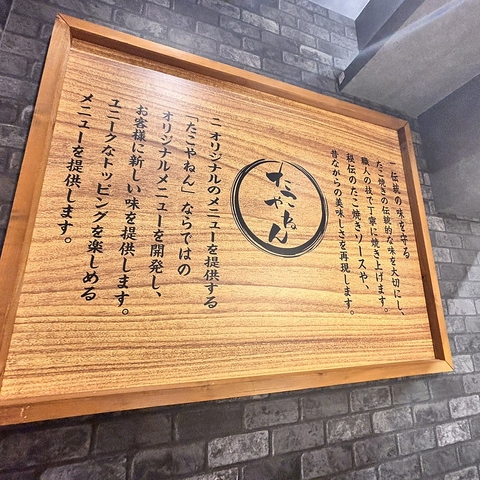 一 伝統の味を守る
たこ焼きの伝統的な味を大切にし、
職人の技で丁寧に焼き上げます。
秘伝のたこ焼きソースや、
昔ながらの美味しさを再現します。
たこ
やねん
二 オリジナルのメニューを提供する
「たこやねん」ならではの
オリジナルメニューを開発し、
お客様に新しい味を提供します。
ユニークなトッピングを楽しめる
メニューを提供します。